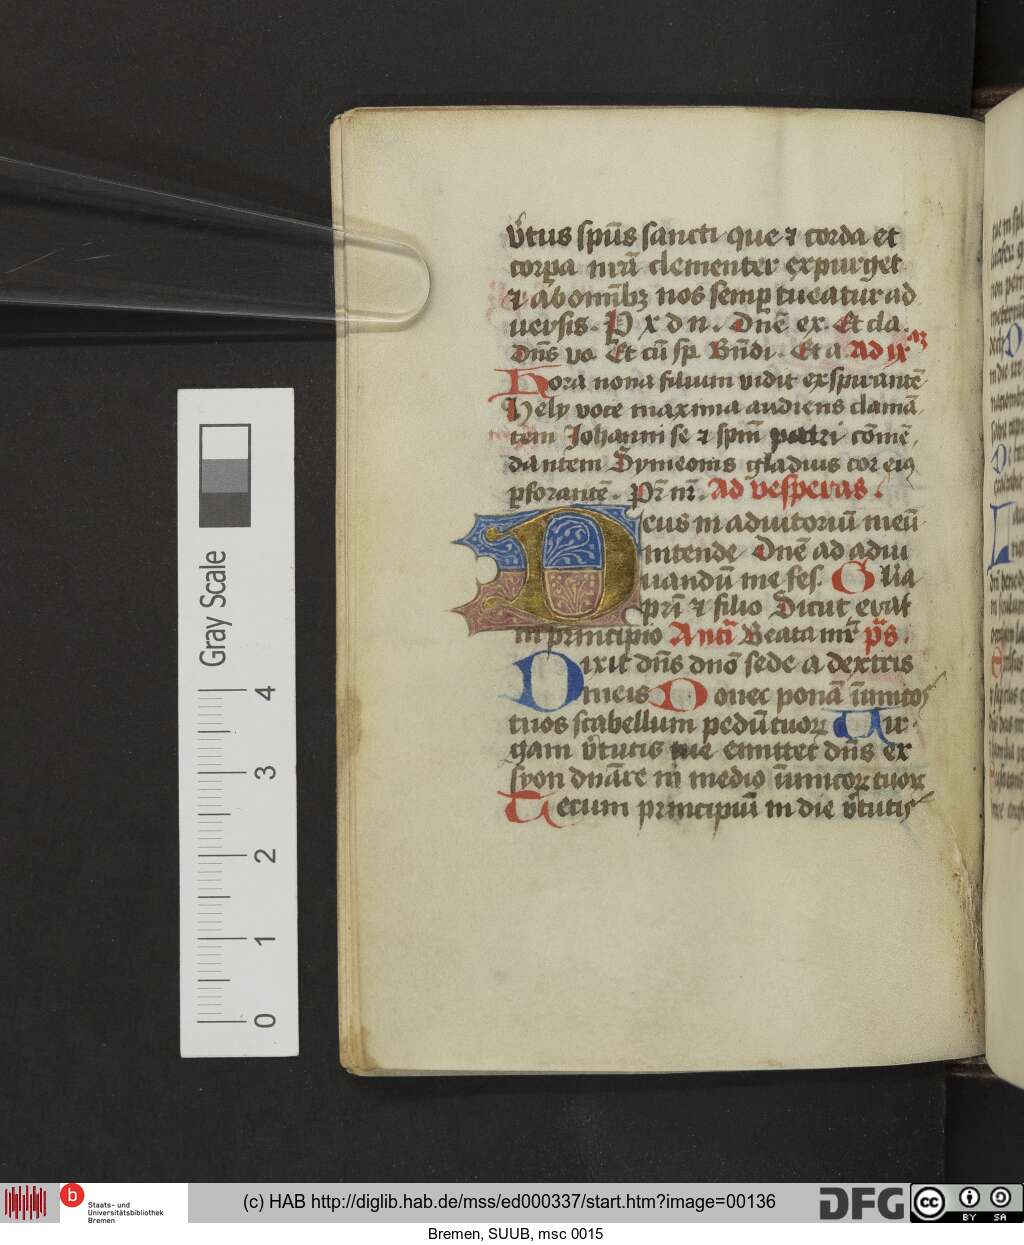 v̾tus sp̄us sancti que ⁊ corda et
corꝑa nr̄a clementer expurget
⁊ ab om̄ibꝫ nos semꝑ tueatur ad
uersis. P x d n. Dn̄e ex. Et cla.
dn̄s vo Et cū sp̄. Bn̄di. Et a Ad ix
Hora nona filium vidit exspirantē
Hely voce maxima audiens clamā
tem Johanni se ⁊ sp̄m patri cōmē
dantem Symeonis gladius cor eiꝰ
ꝑforantē. Pr̄ nr̄. Ad vesperas.
Deus in adiutoriū meū
intende Dn̄e ad adiu
uandū me fes. Gl̄ia
pr̄i ⁊ filio Sicut erat
in principio Antī Beata mr̄ p̄s.
Dixit dn̄s dn̄o sede a dextris
meis Donec ponā īimicos
tuos scabellum pedū tuoꝝ Uir
gam v̾tutis tue emittet dn̄s ex
syon dn̄āre in medio īimicoꝝ tuoꝝ
Tecum principiū in die v̾tutis
Gray Scale
4
3
2
1
0
b
Staats- und
Universitätsbibliothek
Bremen
(c) HAB http://diglib.hab.de/mss/ed000337/start.htm?image=00136
DFG
cc
BY SA
Bremen, SUUB, msc 0015